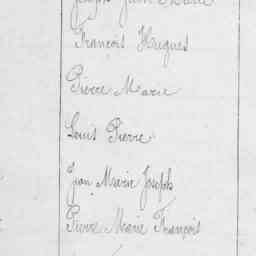 Joseph Jean Marie
François Hugues
Pierre Marie
Louis Pierre
Jean Marie Joseph
Pierre Marie François